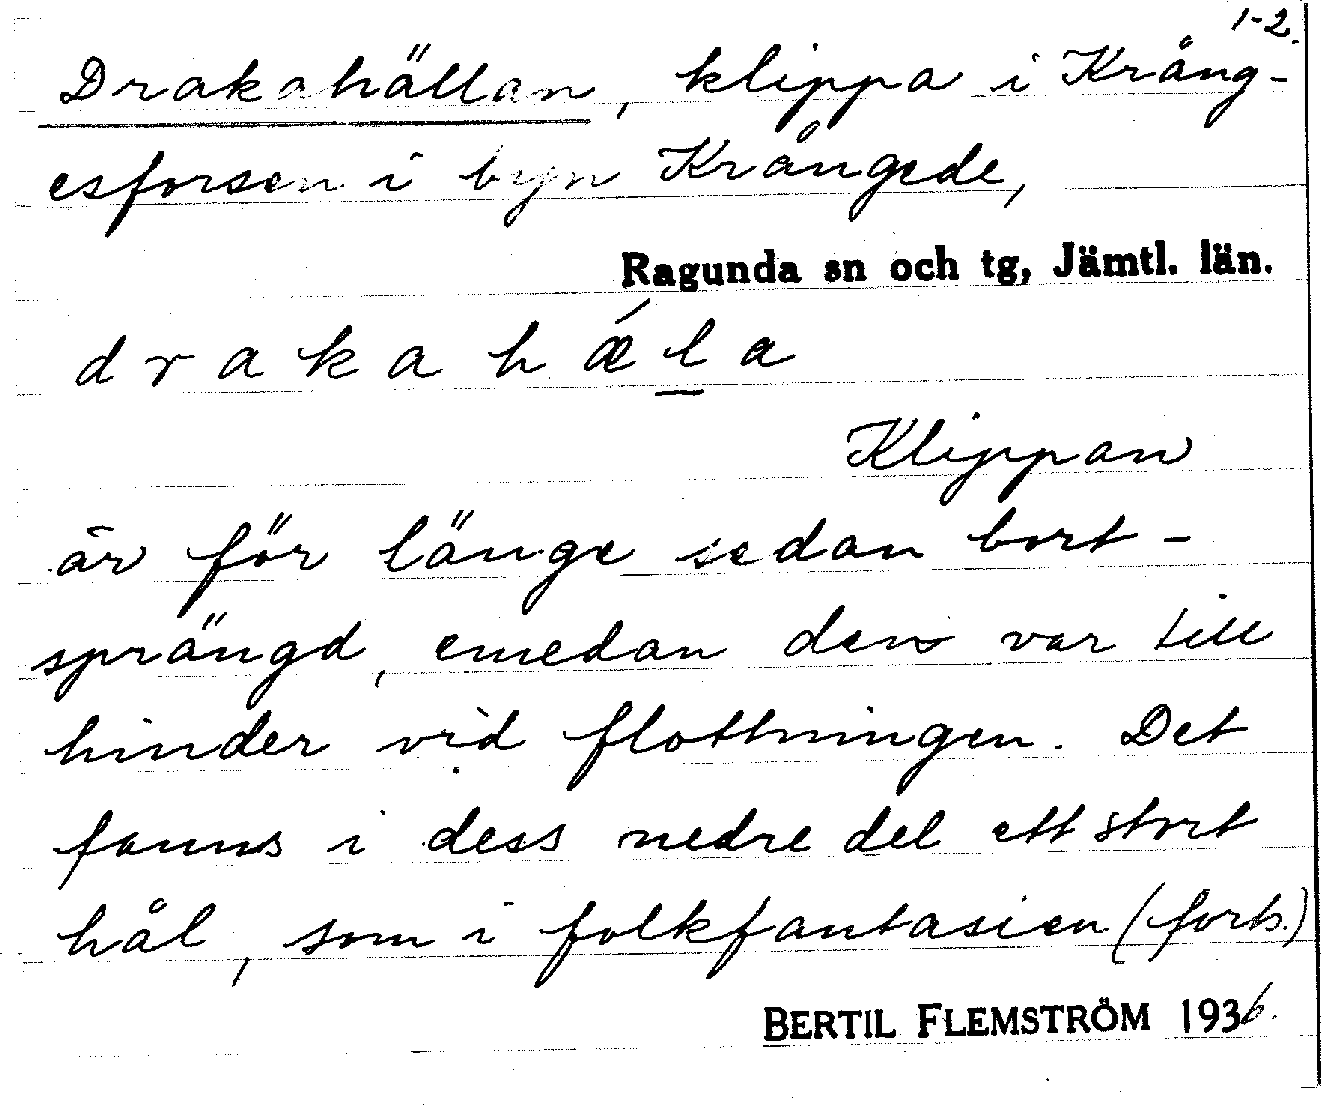 1-2.
Drakahällan, klippa i Krång-
esforsen i byn Krångede,
Ragunda sn och tg, Jämtl. län.
d r a k a h ǽ l a
Klippan
är för länge sedan bort-
sprängd, emedan den var till
hinder vid flottningen. Det
fanns i dess nedre del ett stort
hål, som i folkfantasien (forts.)
BERTIL FLEMSTRÖM 1936.